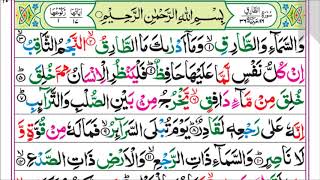 بِسْمِ اللّٰهِ الرَّحْمٰنِ الرَّحِيْمِ
وَالسَّمَآءِ وَالطَّارِقِ ۝ وَمَآ اَدْرٰىكَ مَا الطَّارِقُ ۝ النَّجْمُ الثَّاقِبُ ۝
اِنْ كُلُّ نَفْسٍ لَّمَّا عَلَيْهَا حَافِظٌ ۝ فَلْيَنْظُرِ الْاِنْسَانُ مِمَّ خُلِقَ ۝
خُلِقَ مِنْ مَّآءٍ دَافِقٍ ۝ يَّخْرُجُ مِنْۢ بَيْنِ الصُّلْبِ وَالتَّرَآئِبِ ۝
اِنَّهٗ عَلٰى رَجْعِهٖ لَقَادِرٌ ۝ يَوْمَ تُبْلَى السَّرَآئِرُ ۝ فَمَا لَهٗ مِنْ قُوَّةٍ وَّ
لَا نَاصِرٍ ۝ وَالسَّمَآءِ ذَاتِ الرَّجْعِ ۝ وَالْاَرْضِ ذَاتِ الصَّدْعِ ۝